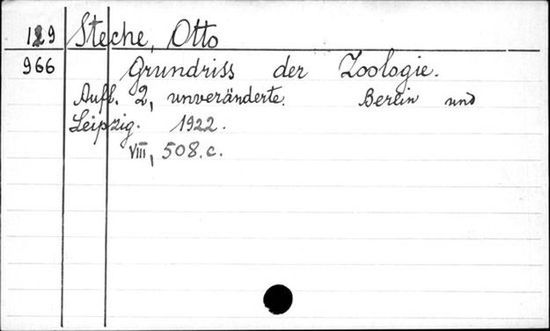 129 Steche, Otto
966 Grundriss der Zoologie.
Aufl. 2, unveränderte. Berlin und
Leipzig. 1922.
VIII, 508.c.